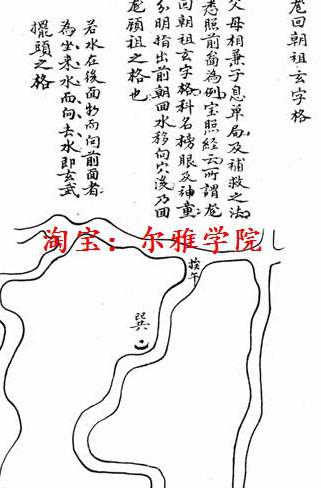 龙回朝祖玄字格
父母相兼子息单局及補救之法
悉照前啚為例宝照经云所謂龙
回朝祖玄字格科名榜眼及神童
分明指出前朝回水移向穴後乃回
龙顾祖之格也
若水在後面而向前面者
為坐来水而向去水即玄武
擺頭之格
淘宝：尔雅学院
午
巽